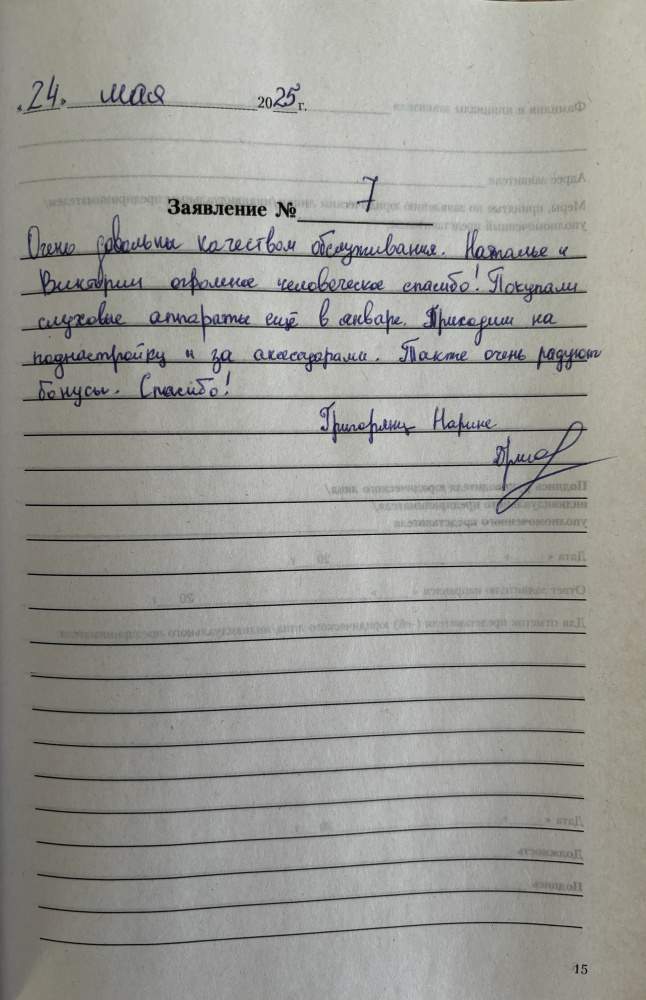 «24» мая 2025 г.
Заявление № 7
Очень довольны качеством обслуживания. Наталье и
Виктории огромное человеческое спасибо! Покупали
слуховые аппараты ещё в январе. Приходим на
поднастройку и за аксесуарами. Также очень радуют
бонусы. Спасибо!
Григорянц Нарине
15